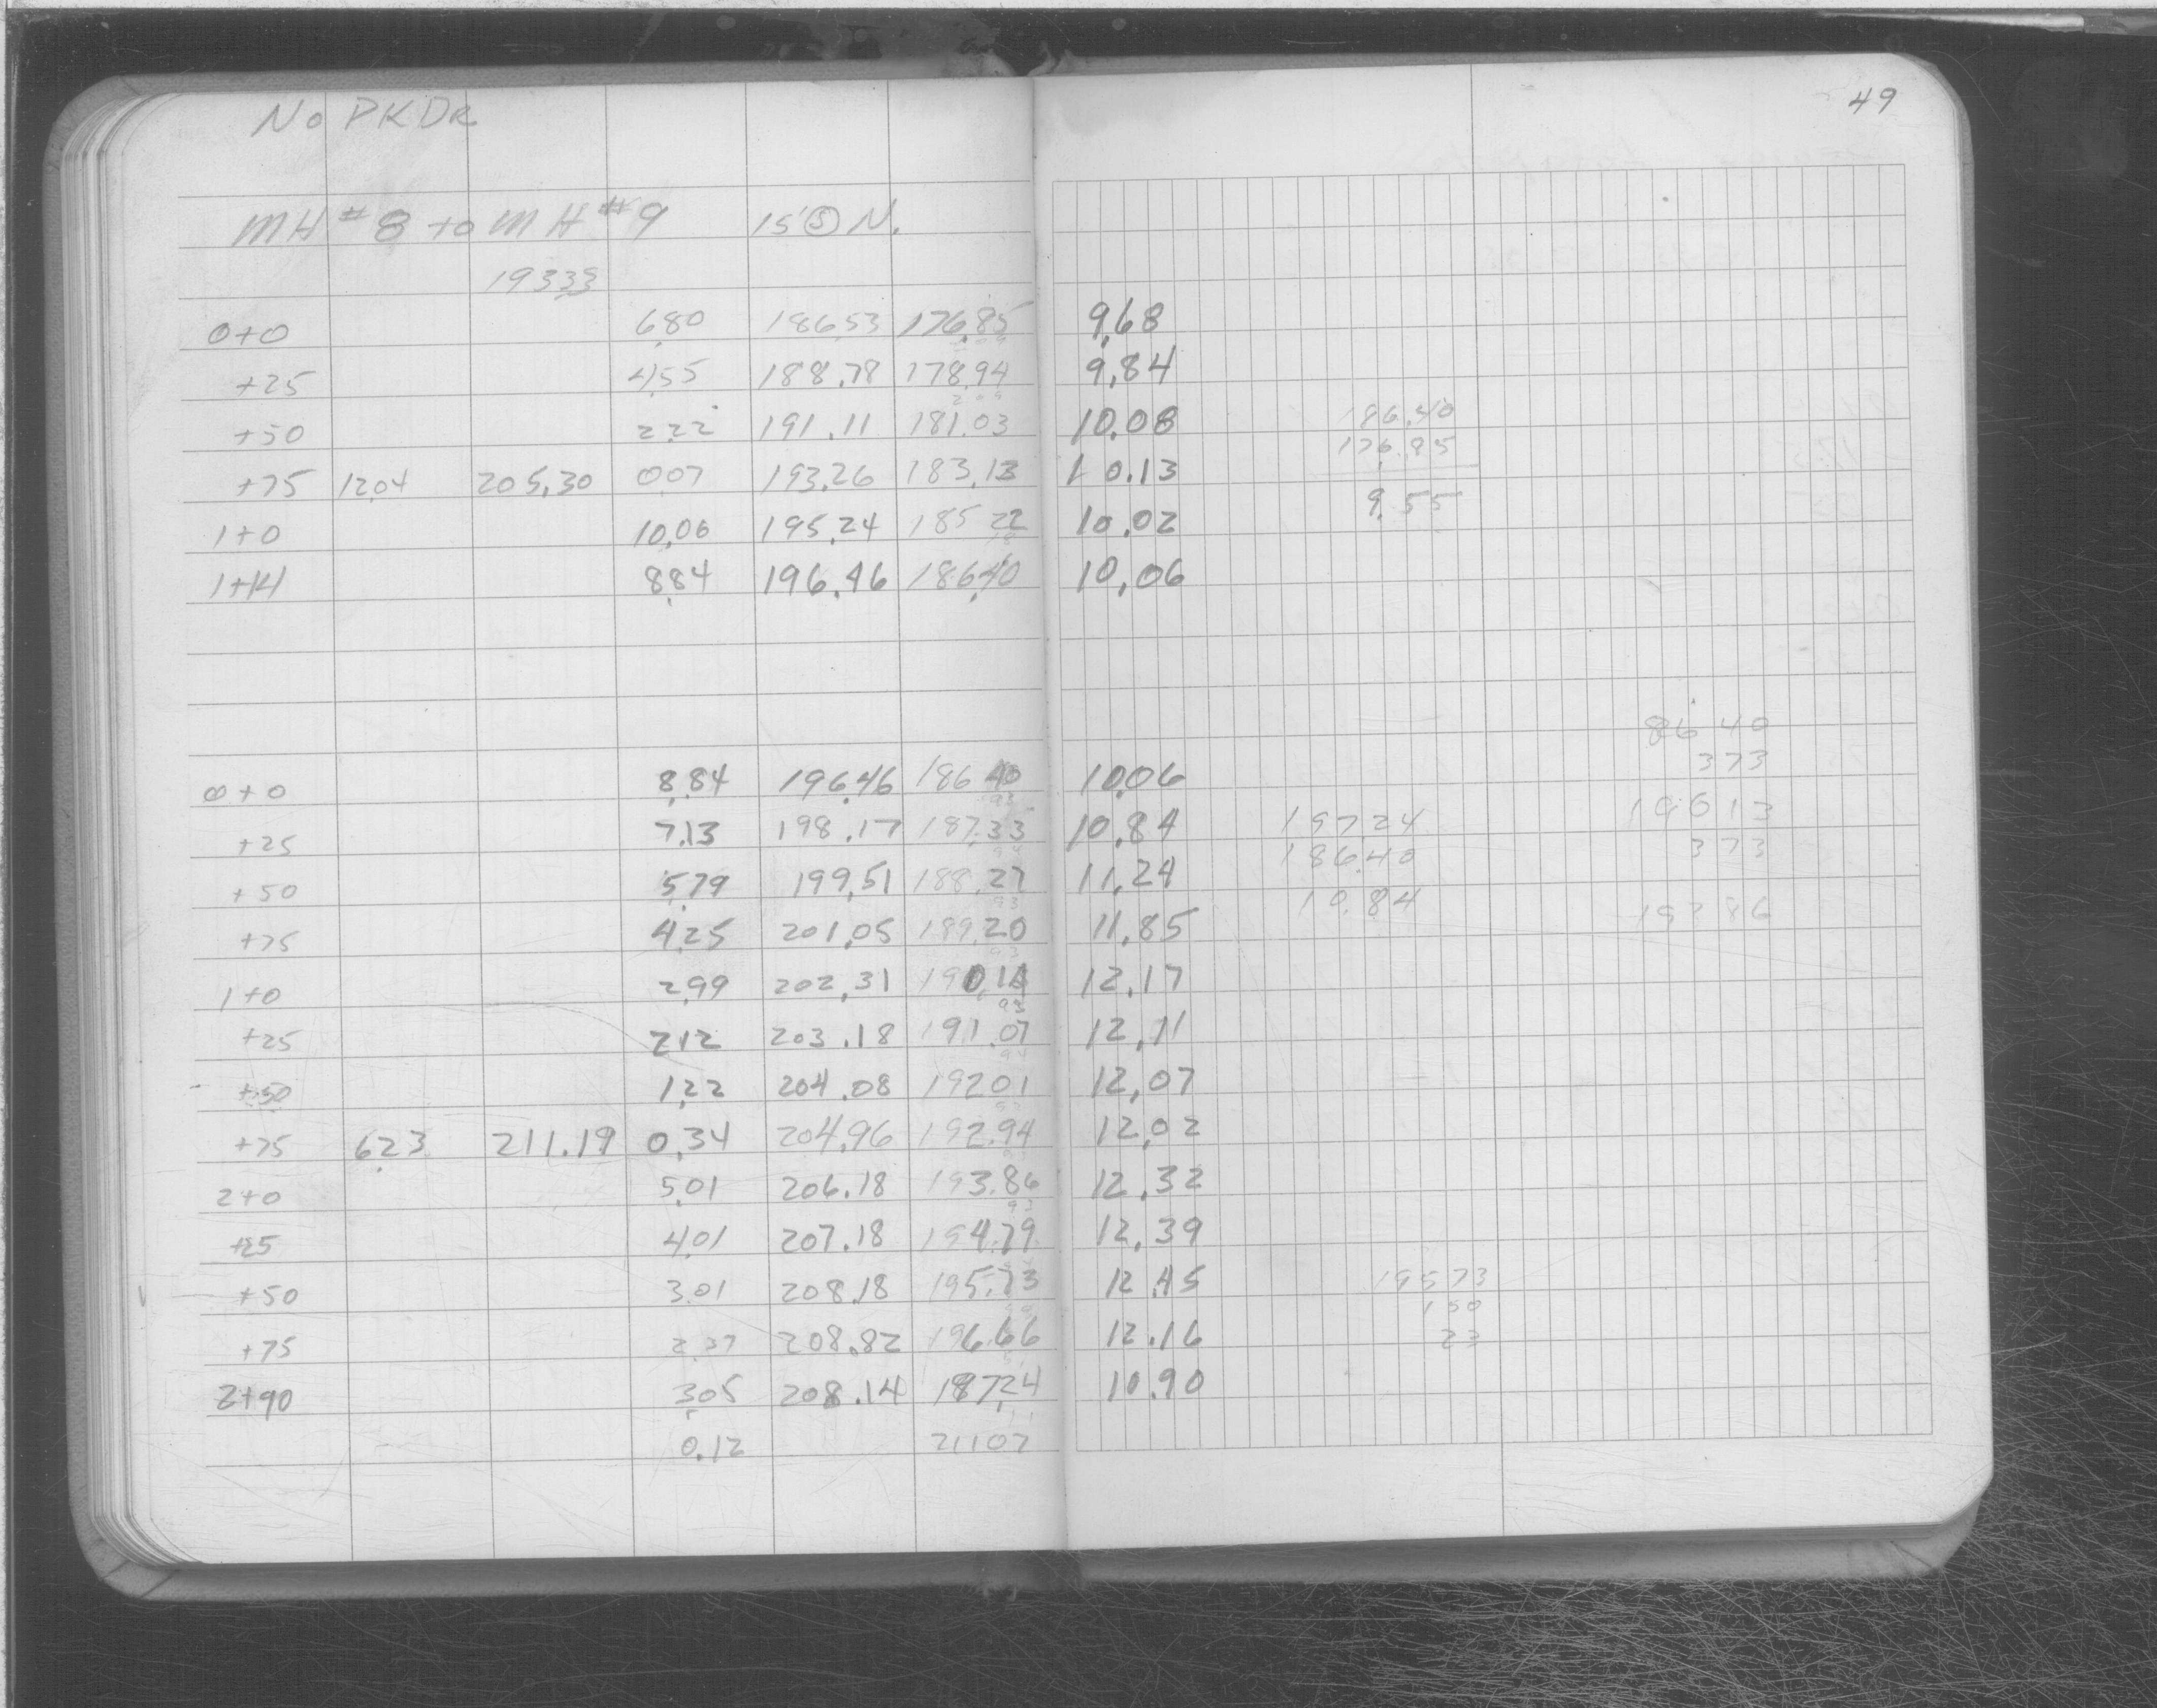 49
No PKDR
MH #8 to MH #9 15' Ⓢ N.
193.33
0+0 6.80 186.53 176.85 9.68
+25 4.55 188.78 178.94 9.84
+50 2.22 191.11 181.03 10.08 186.40
+75 12.04 205.30 0.07 193.26 183.13 10.13 176.85
1+0 10.06 195.24 185.22 10.02 9.55
1+14 8.84 196.46 186.40 10.06
86 40
0+0 8.84 196.46 186 40 10.06 373
+25 7.13 198.17 187.33 10.84 19724 19013
+50 5.79 199.51 188.27 11.24 186.40 373
+75 4.25 201.05 189.20 11.85 10.84
1+0 2.99 202.31 12.17
+25 2.12 203.18 191.07 12.11
+50 1.22 204.08 19201 12.07
+75 6.23 211.19 0.34 204.96 192.94 12.02
2+0 5.01 206.18 193.86 12.32
+25 4.01 207.18 194.79 12.39
+50 3.01 208.18 195.73 12.45 19573
150
+75 2.37 208.82 196.66 12.16 23
2+90 3.05 208.14 187.24 10.90
0.12 21107